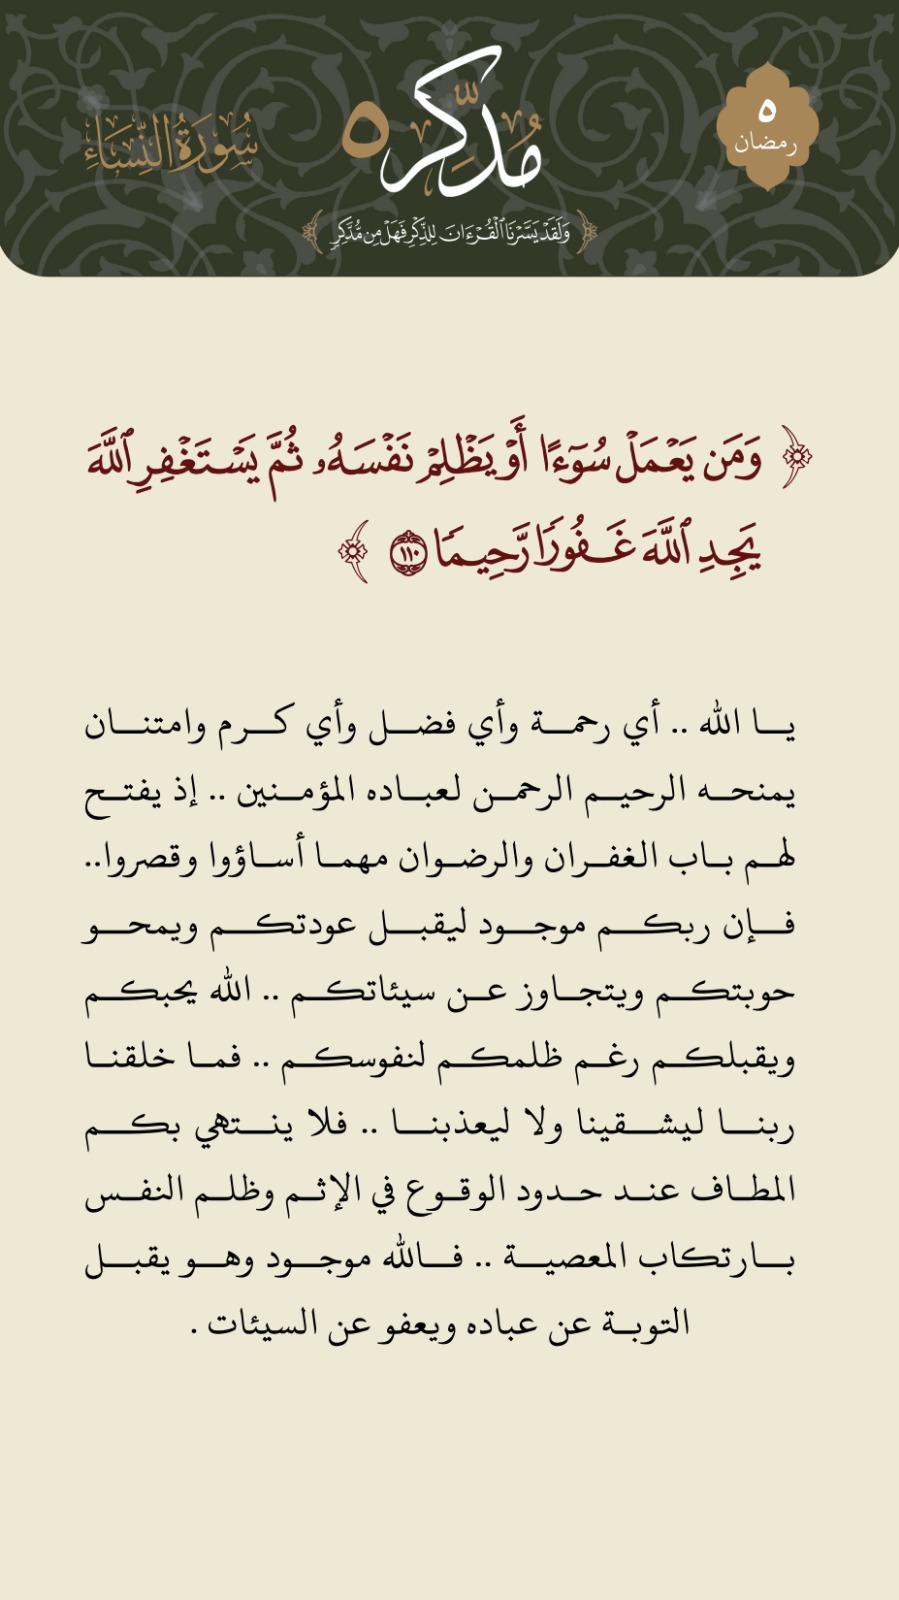 ٥
رمضان
مُدَّكِر ٥
سُورَةُ النِّسَاءِ
﴿ وَلَقَدْ يَسَّرْنَا ٱلْقُرْءَانَ لِلذِّكْرِ فَهَلْ مِن مُّدَّكِرٍ ﴾
﴿ وَمَن يَعْمَلْ سُوٓءًا أَوْ يَظْلِمْ نَفْسَهُۥ ثُمَّ يَسْتَغْفِرِ ٱللَّهَ
يَجِدِ ٱللَّهَ غَفُورًا رَّحِيمًا ١١٠ ﴾
يا الله .. أي رحمة وأي فضل وأي كرم وامتنان
يمنحه الرحيم الرحمن لعباده المؤمنين .. إذ يفتح
لهم باب الغفران والرضوان مهما أساؤوا وقصروا..
فإن ربكم موجود ليقبل عودتكم ويمحو
حوبتكم ويتجاوز عن سيئاتكم .. الله يحبكم
ويقبلكم رغم ظلمكم لنفوسكم .. فما خلقنا
ربنا ليشقينا ولا ليعذبنا .. فلا ينتهي بكم
المطاف عند حدود الوقوع في الإثم وظلم النفس
بارتكاب المعصية .. فالله موجود وهو يقبل
التوبة عن عباده ويعفو عن السيئات .